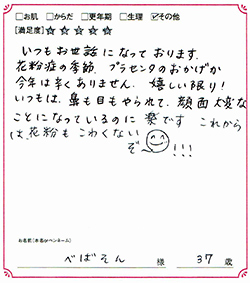 □お肌 □からだ □更年期 □生理 ☑その他
[満足度]☆☆☆☆☆
いつもお世話になっております。
花粉症の季節、プラセンタのおかげか
今年は辛くありません。嬉しい限り!
いつもは、鼻も目もやられて、顔面大変な
ことになっているのに楽です これから
は、花粉もこわくない
ぞ〜!!!
お名前(本名orペンネーム)
べばそん 様 37歳